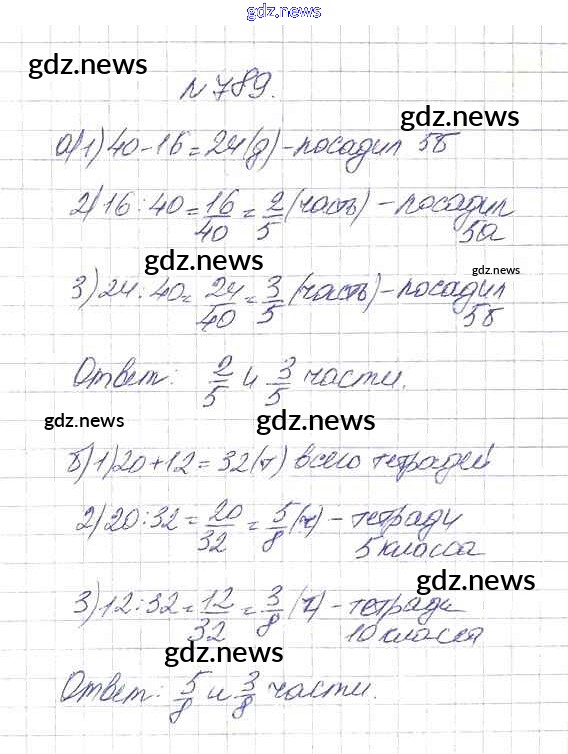 gdz.news
gdz.news
№ 789.
gdz.news
а) 1) 40 - 16 = 24 (д) - посадил 5б
2) 16 : 40 = 16/40 = 2/5 (часть) - посадил
5а
gdz.news
gdz.news
3) 24 : 40 = 24/40 = 3/5 (часть) - посадил
5б
Ответ: 2/5 и 3/5 части.
gdz.news
gdz.news
б) 1) 20 + 12 = 32 (т) всего тетрадей
2) 20 : 32 = 20/32 = 5/8 (ч) - тетради
5 класса
gdz.news
3) 12 : 32 = 12/32 = 3/8 (ч) - тетради
10 класса
gdz.news
Ответ: 5/8 и 3/8 части.